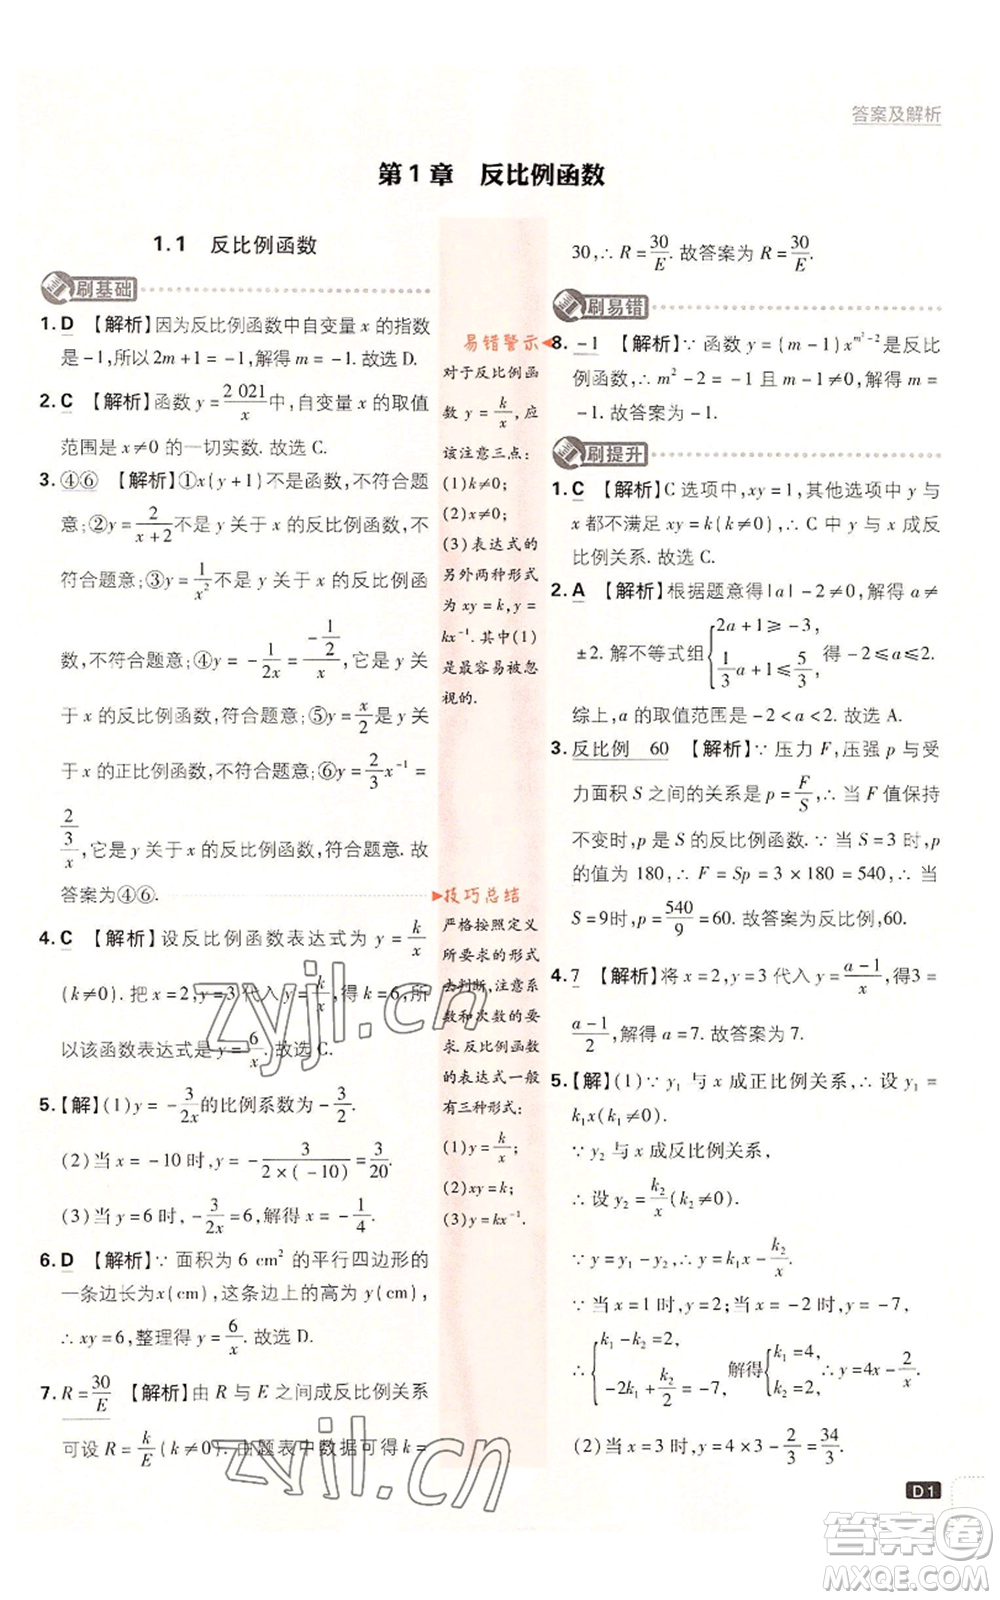 答案及解析
第1章 反比例函数
1.1 反比例函数
刷基础
1. D 【解析】因为反比例函数中自变量 x 的指数
是 -1, 所以 2m+1=-1, 解得 m=-1. 故选 D.
2. C 【解析】函数 y=2 021/x 中, 自变量 x 的取值
范围是 x≠0 的一切实数. 故选 C.
3. ④⑥ 【解析】①x(y+1)不是函数, 不符合题
意; ②y=2/(x+2)不是 y 关于 x 的反比例函数, 不
符合题意; ③y=1/x²不是 y 关于 x 的反比例函
数, 不符合题意; ④y=-1/(2x)=(-1/2)/x, 它是 y 关
于 x 的反比例函数, 符合题意; ⑤y=x/2是 y 关
于 x 的正比例函数, 不符合题意; ⑥y=2/3 x⁻¹=
(2/3)/x, 它是 y 关于 x 的反比例函数, 符合题意. 故
答案为④⑥.
4. C 【解析】设反比例函数表达式为 y=k/x
(k≠0). 把 x=2, y=3 代入 y=k/x, 得 k=6, 所
以该函数表达式是 y=6/x. 故选 C.
5. 【解】(1)y=-3/(2x)的比例系数为-3/2.
(2)当 x=-10 时, y=-3/(2×(-10))=3/20.
(3)当 y=6时, -3/(2x)=6, 解得 x=-1/4.
6. D 【解析】∵ 面积为 6 cm² 的平行四边形的
一条边长为x(cm), 这条边上的高为 y(cm),
∴ xy=6, 整理得 y=6/x. 故选 D.
7. R=30/E 【解析】由 R 与 E 之间成反比例关系
可设 R=k/E(k≠0). 由题表中数据可得 k=
易错警示
对于反比例函
数 y=k/x, 应
该注意三点:
(1)k≠0;
(2)x≠0;
(3)表达式的
另外两种形式
为 xy=k, y=
kx⁻¹. 其中(1)
是最容易被忽
视的.
技巧总结
严格按照定义
所要求的形式
去判断, 注意系
数和次数的要
求. 反比例函数
的表达式一般
有三种形式:
(1)y=k/x;
(2)xy=k;
(3)y=kx⁻¹.
30, ∴ R=30/E. 故答案为 R=30/E.
刷易错
8. -1 【解析】∵ 函数 y=(m-1)x^(m²-2)是反比
例函数, ∴ m²-2=-1 且 m-1≠0, 解得 m=
-1. 故答案为-1.
刷提升
1. C 【解析】C 选项中, xy=1, 其他选项中 y 与
x 都不满足 xy=k(k≠0), ∴ C 中 y 与 x 成反
比例关系. 故选 C.
2. A 【解析】根据题意得|a|-2≠0, 解得 a≠
±2. 解不等式组{2a+1≥-3, 1/3 a+1≤5/3, 得-2≤a≤2.
综上, a 的取值范围是-2<a<2. 故选 A.
3. 反比例 60 【解析】∵ 压力 F, 压强 p 与受
力面积 S 之间的关系是 p=F/S, ∴ 当 F 值保持
不变时, p 是 S 的反比例函数. ∵ 当 S=3 时, p
的值为 180, ∴ F=Sp=3×180=540, ∴ 当
S=9时, p=540/9=60. 故答案为反比例, 60.
4. 7 【解析】将 x=2, y=3 代入 y=(a-1)/x, 得3=
(a-1)/2, 解得 a=7. 故答案为 7.
5. 【解】(1)∵ y₁ 与 x 成正比例关系, ∴ 设 y₁=
k₁x(k₁≠0).
∵ y₂ 与 x 成反比例关系,
∴ 设 y₂=k₂/x(k₂≠0).
∵ y=y₁+y₂, ∴ y=k₁x+k₂/x.
∵ 当 x=1 时, y=2; 当 x=-2 时, y=-7,
∴ {k₁+k₂=2, -2k₁+k₂/-2=-7, 解得{k₁=4, k₂=-2, ∴ y=4x-2/x.
(2)当 x=3 时, y=4×3-2/3=34/3.
D1
zyjl.cn
zyjl.cn
答案卷
MXQE.COM